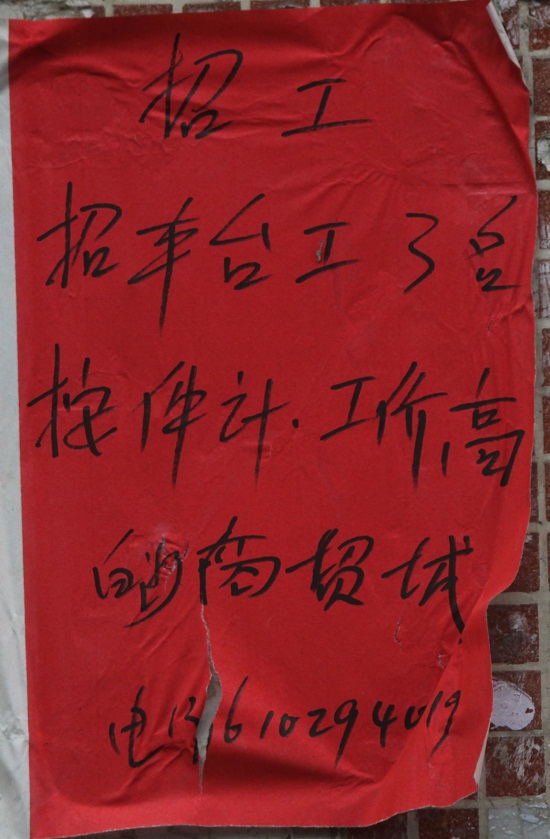 招工
招车台工3名
按件计.工价高
白商贸城
电13610294019